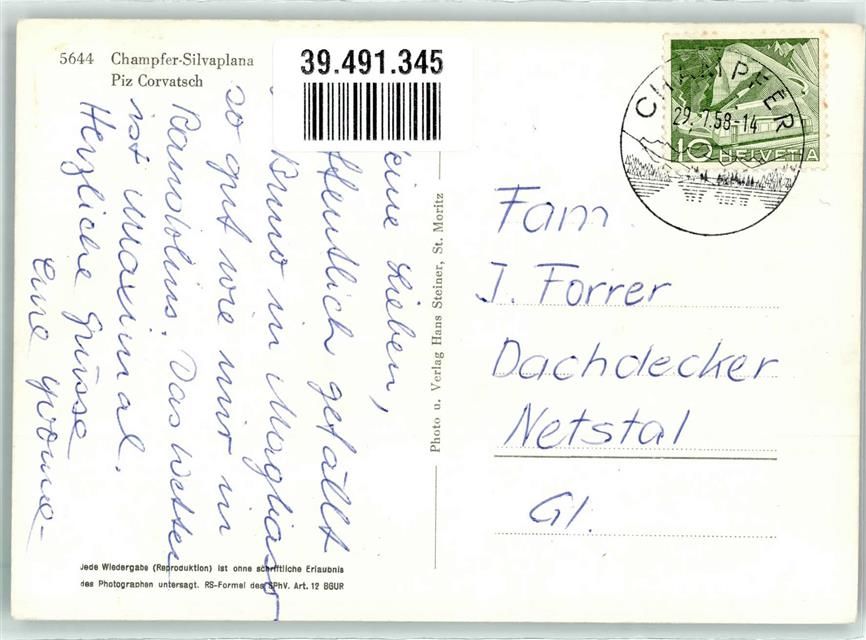 5644 Champfer-Silvaplana
Piz Corvatsch
39.491.345
CHAMPFER
29.7.58-14
10 HELVETIA
eine Lieben,
ffentlich gefällt
Bruno in Magliaso
so gut wie mir in
ist maximal.
Herzliche Grüsse
Eure Yvonne-
Photo u. Verlag Hans Steiner, St. Moritz
Fam.
J. Forrer
Dachdecker
Netstal
Gl.
Jede Wiedergabe (Reproduktion) ist ohne schriftliche Erlaubnis
des Photographen untersagt. RS-Formel des SPhV. Art. 12 BGUR